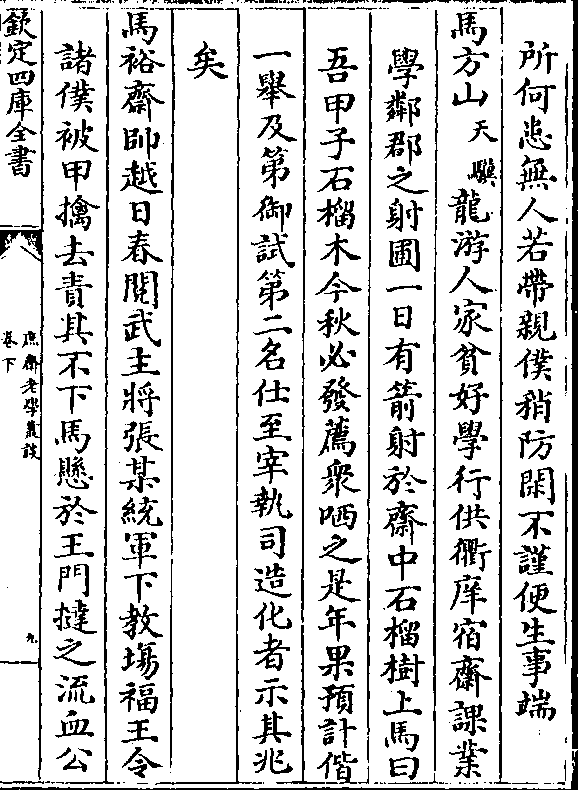 所何患無人若帶親僕稍防閑不謹便生事端
馬方山天驥龍游人家貧好學行供衢庠宿齋課業
學鄰郡之射圃一日有箭射於齋中石榴樹上馬曰
吾甲子石榴木今秋必發薦衆哂之是年果預計偕
一舉及第御試第二名仕至宰執司造化者示其兆
矣
馬裕齋帥越日春閱武主將張某統軍下教塲福王令
諸僕被甲擒去責其不下馬懸於王門撻之流血公
欽定四庫全書
庶齋老學叢談
卷下
九